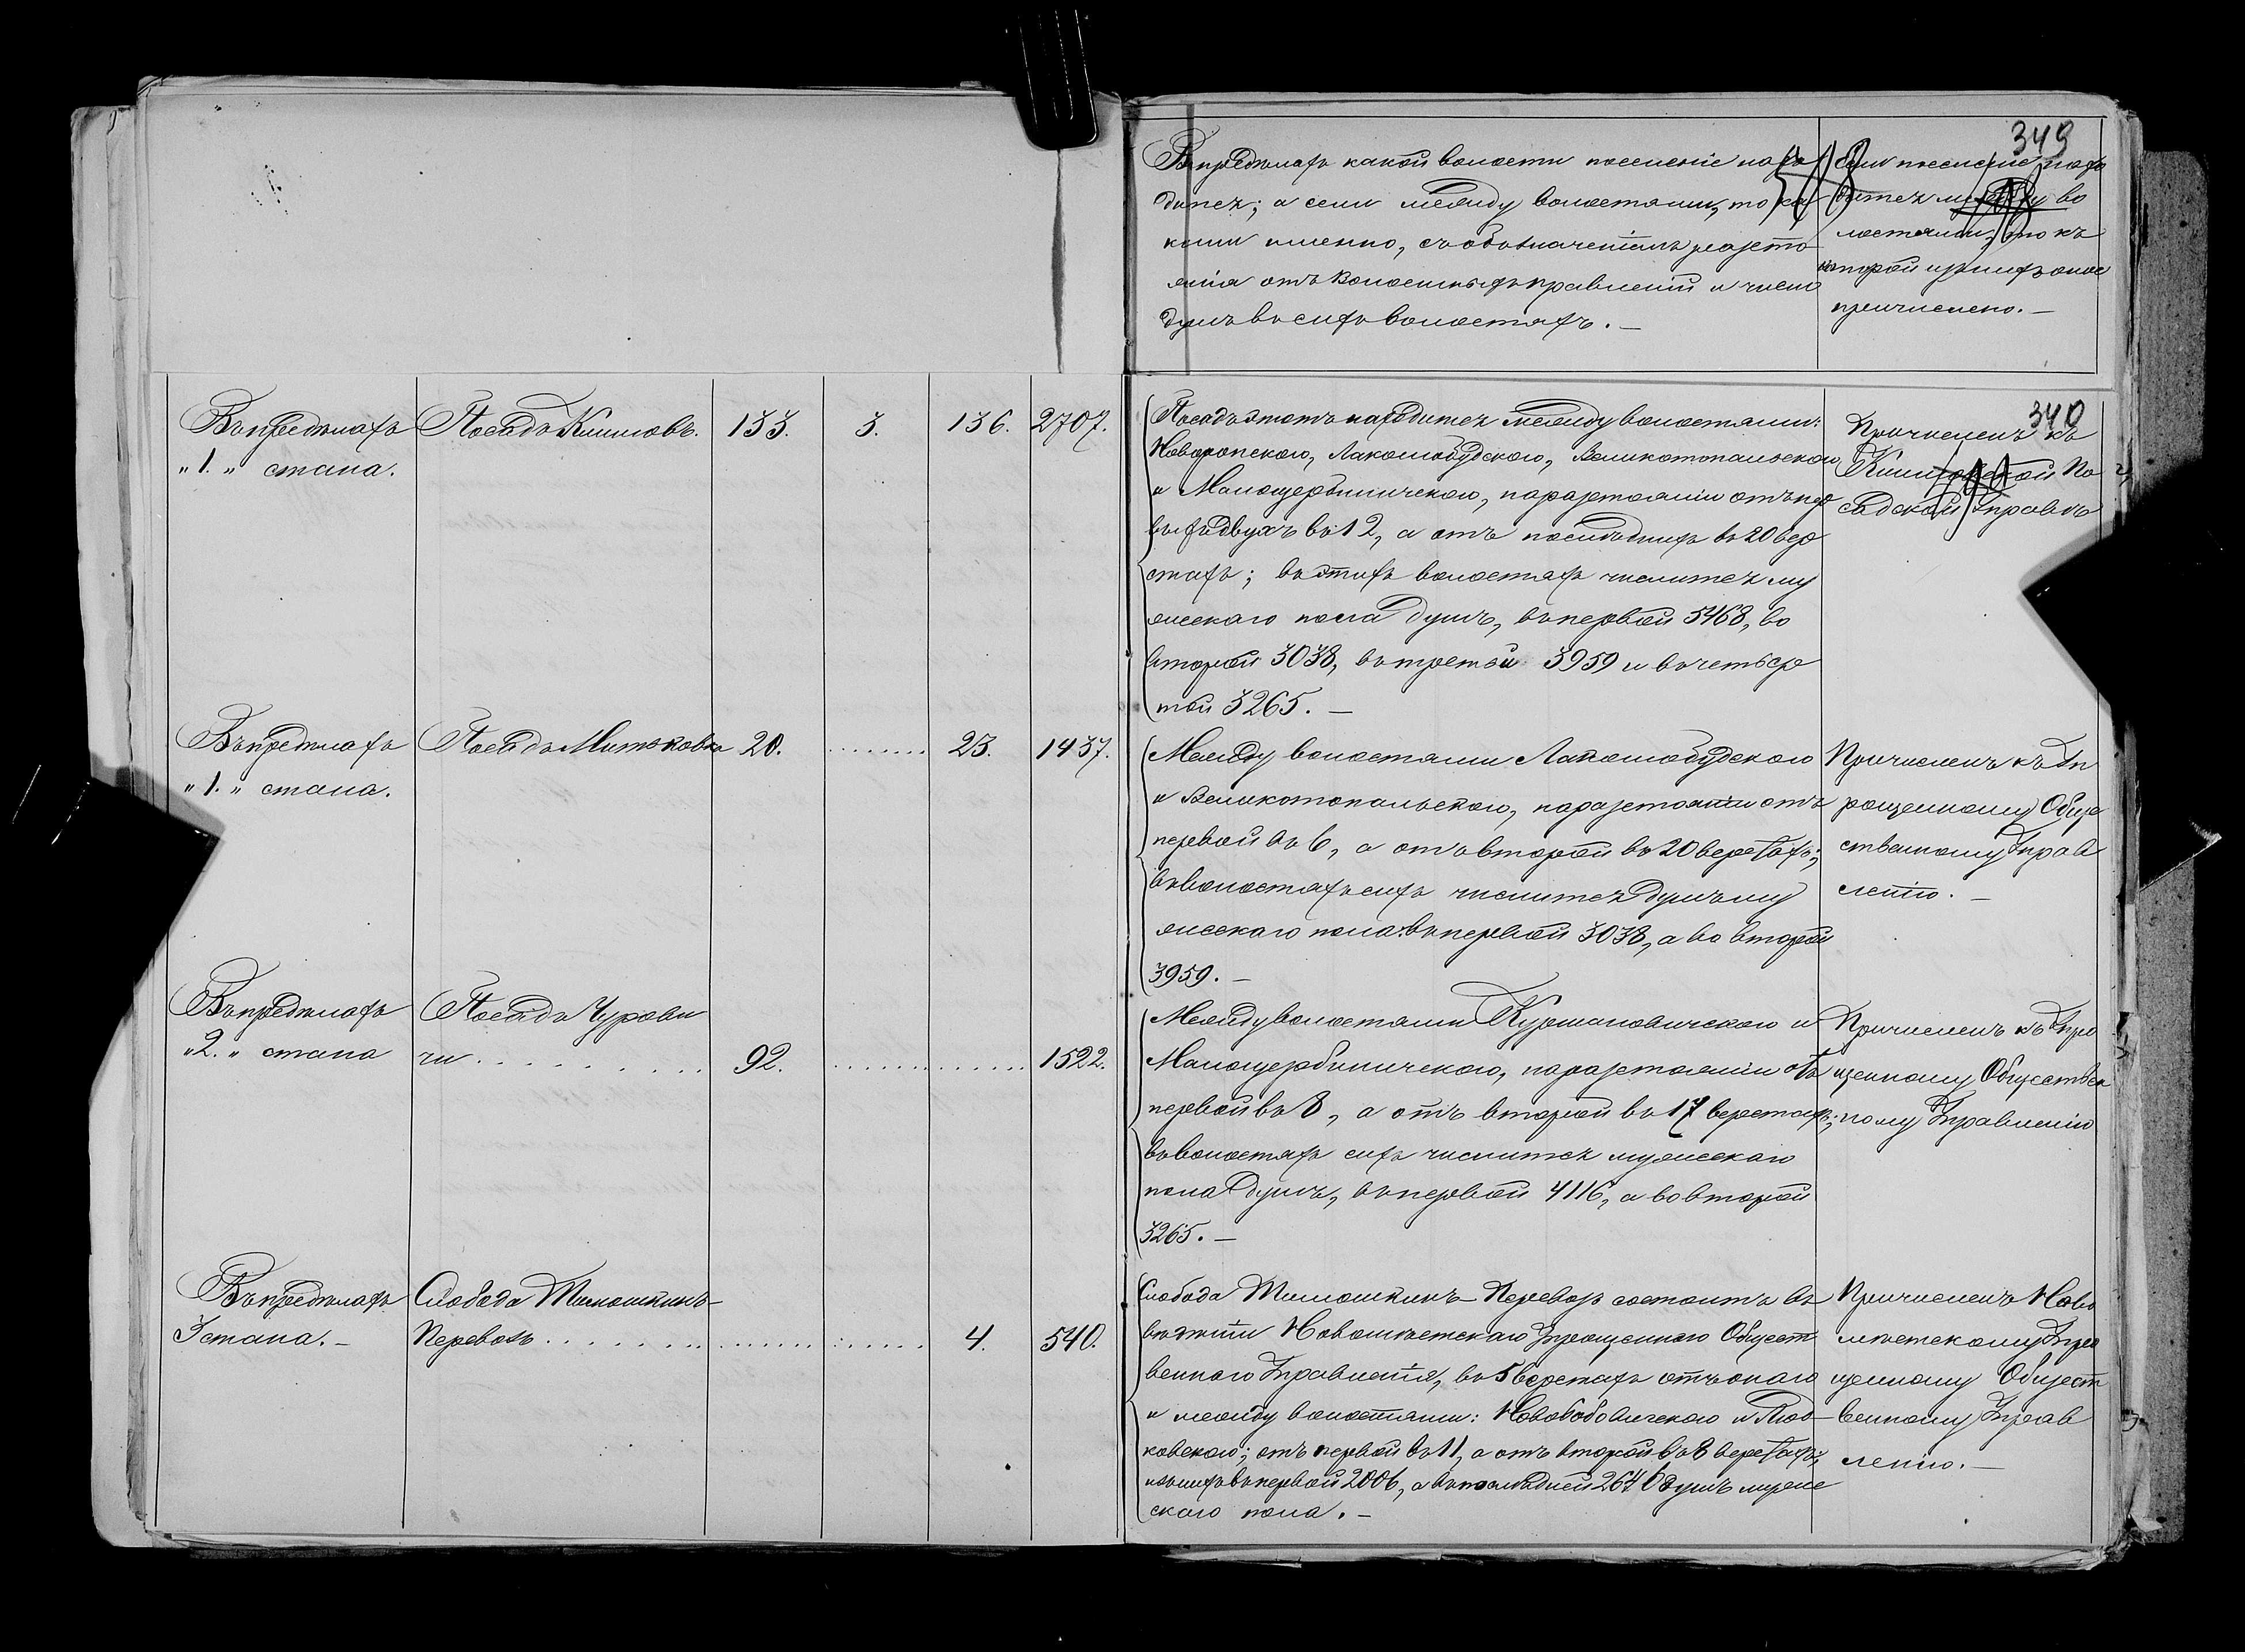 349
Въ предѣлахъ какой волости поселеніе нахо
дится; а если между волостями, то ка
кими именно, съ обозначеніемъ разсто
янія отъ Волостныхъ правленій и число
душъ въ сихъ волостяхъ. —
Если поселеніе нахо
дится между во
лостями, то къ
которой изъ нихъ оное
причислено. —
Въ предѣлахъ
„1.„ стана.
Посадъ Климовъ.
133.
3.
136.
2707.
Посадъ этотъ находится между волостями:
Новоропскою, Лакомобудскою, Великотопальскою
и Малощербиничскою, на разстояніи отъ пер
выхъ двухъ въ 12, а отъ послѣднихъ въ 20 вер
стахъ; въ этихъ волостяхъ числится му
жескаго пола душъ, въ первой 5468, во
второй 3038, въ третьей 3959 и въ четвер
той 3265. —
340
Причисленъ къ
Климовской По
садской Управѣ
Въ предѣлахъ
„1.„ стана.
Посадъ Митьковка
20.
23.
1437.
Между волостями Лакомобудскою
и Великотопальскою, на разстояніи отъ
первой въ 6, а отъ второй въ 20 верстахъ;
въ волостяхъ сихъ числится душъ му
жескаго пола: въ первой 3038, а во второй
3959. —
Причисленъ къ Уп
рощенному Обще
ственному Управ
ленію. —
Въ предѣлахъ
„2.„ стана
Посадъ Чурови
чи . . . . . . . . .
92.
1522.
Между волостями Куршановичскою и
Малощербиничскою, на разстояніи отъ
первой въ 8, а отъ второй въ 17 верстахъ;
въ волостяхъ сихъ числится мужескаго
пола душъ, въ первой 4116, а во второй
3265. —
Причисленъ къ Упро
щенному Обществен
ному Управленію
Въ предѣлахъ
3 стана. —
Слобода Тимошкинъ-
Перевозъ . . . . . . .
4.
540.
Слобода Тимошкинъ-Перевозъ состоитъ въ
вѣденіи Новомѣстскаго Упрощеннаго Общест
веннаго Управленія, въ 5 верстахъ отъ онаго
и между волостями: Новобобовичскою и
ковскою; отъ первой въ 11, а отъ второй въ 8 верстахъ;
въ первой 2006, а въ послѣдней 2646 душъ муже
скаго пола. —
Причисленъ Ново
мѣстскому Упро
щенному Общест
венному Управ
ленію. —